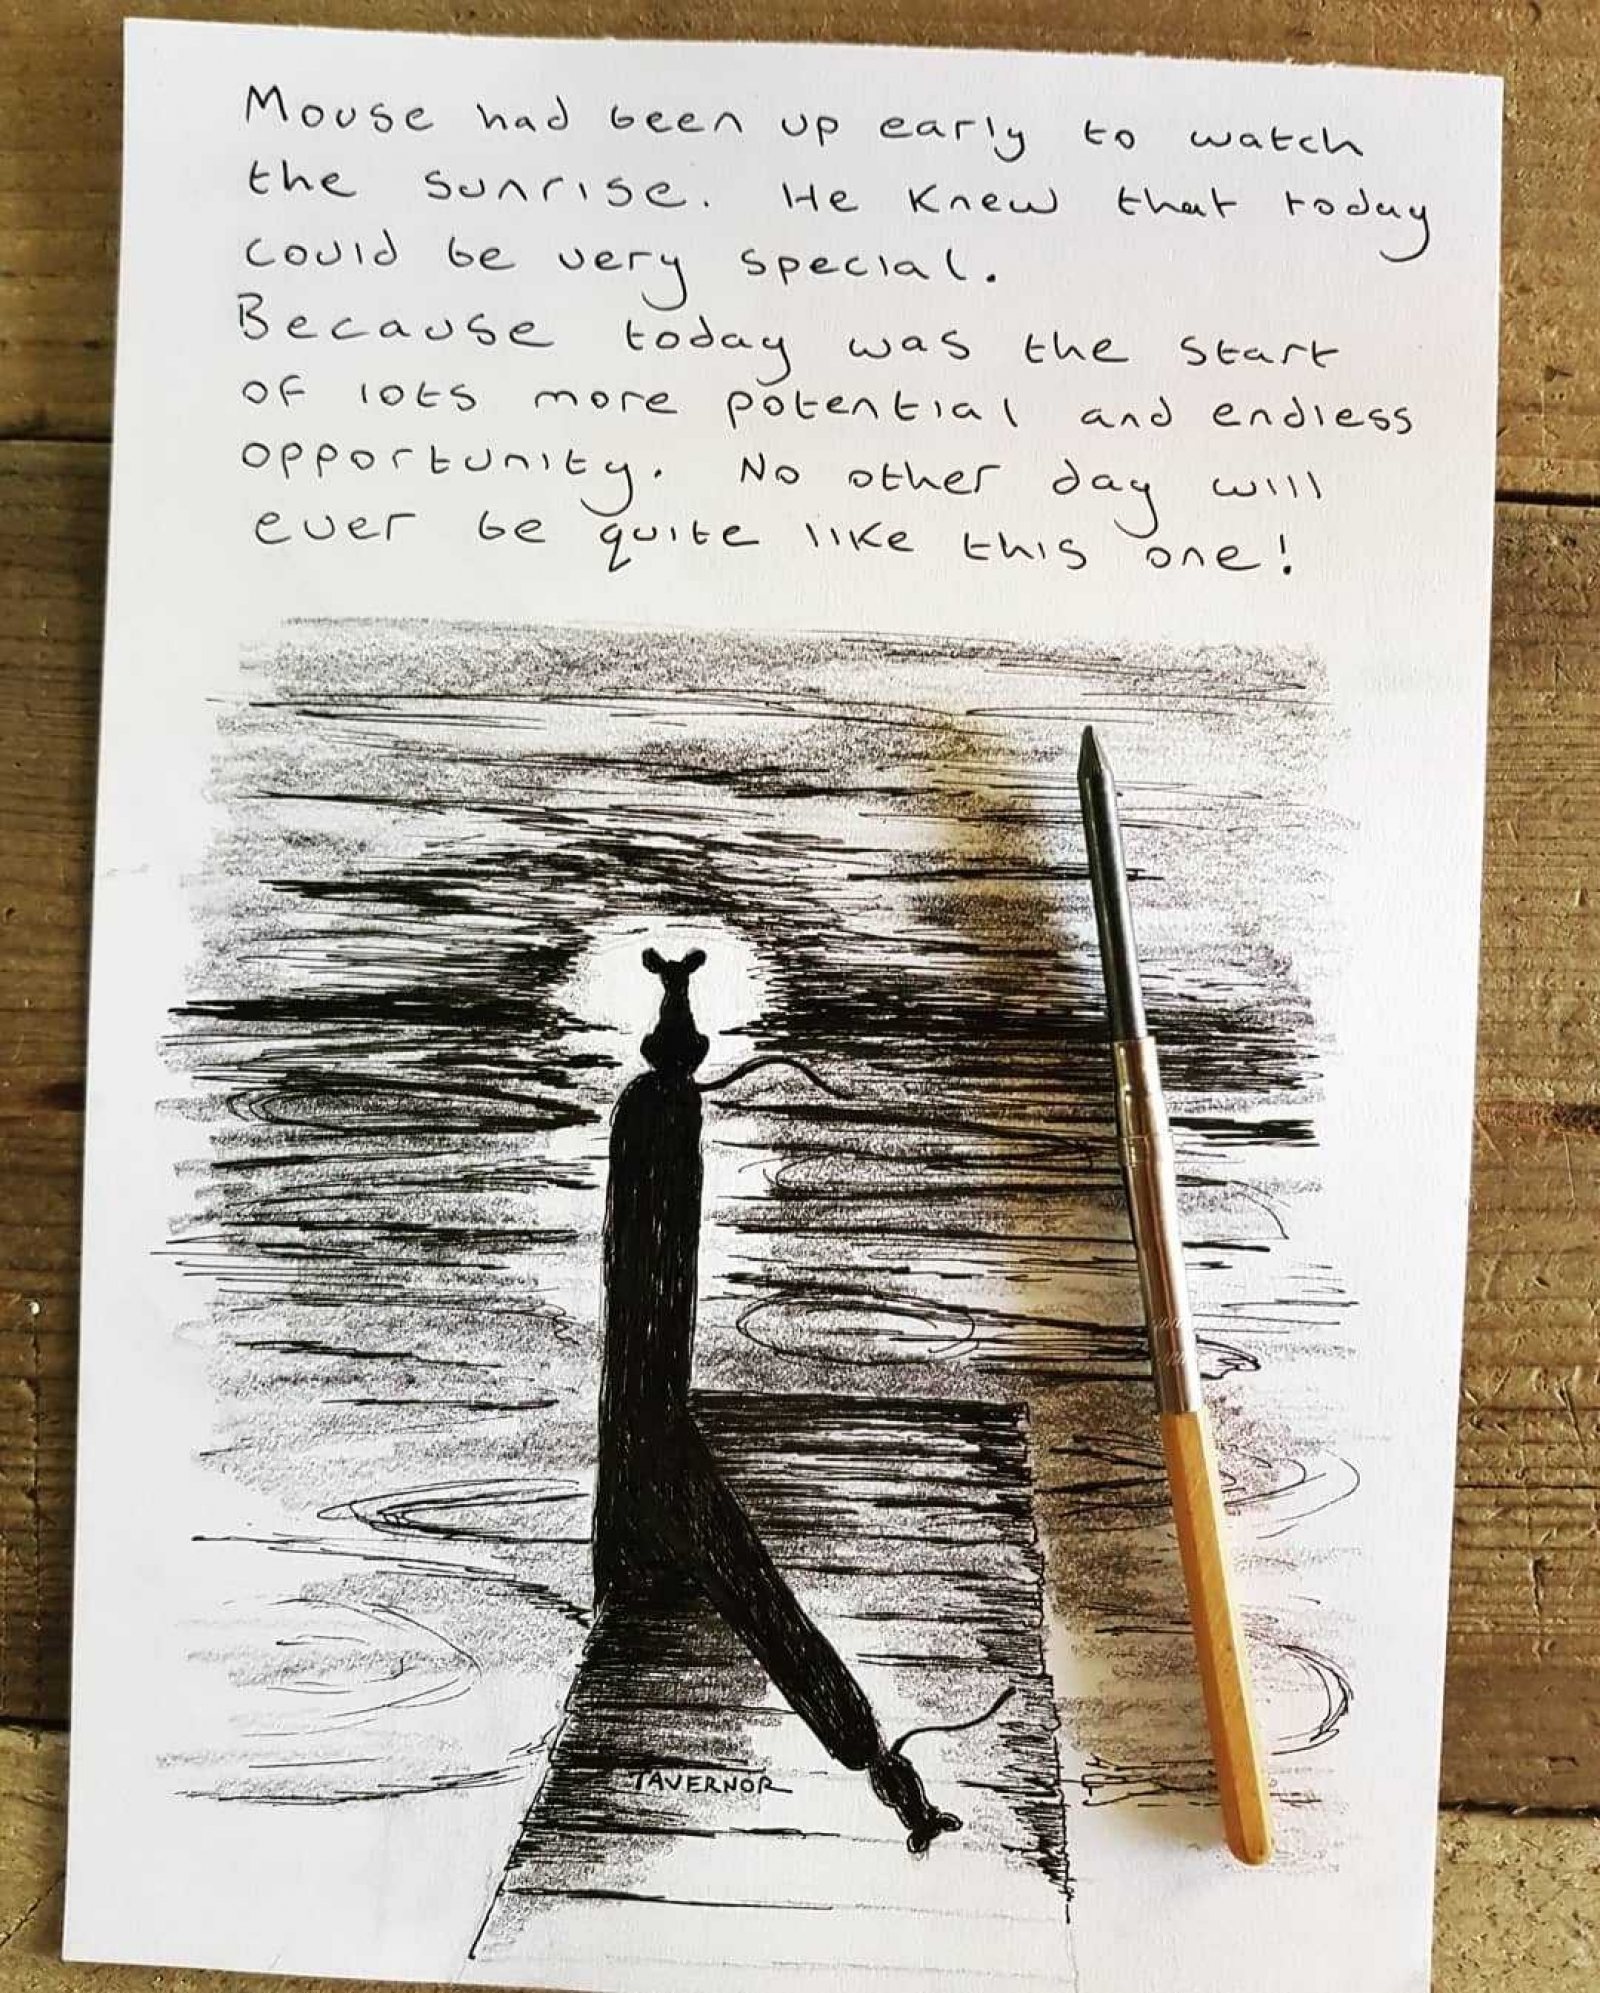 Mouse had been up early to watch
the sunrise. He knew that today
could be very special.
Because today was the start
of lots more potential and endless
opportunity. No other day will
ever be quite like this one!
TAVERNOR